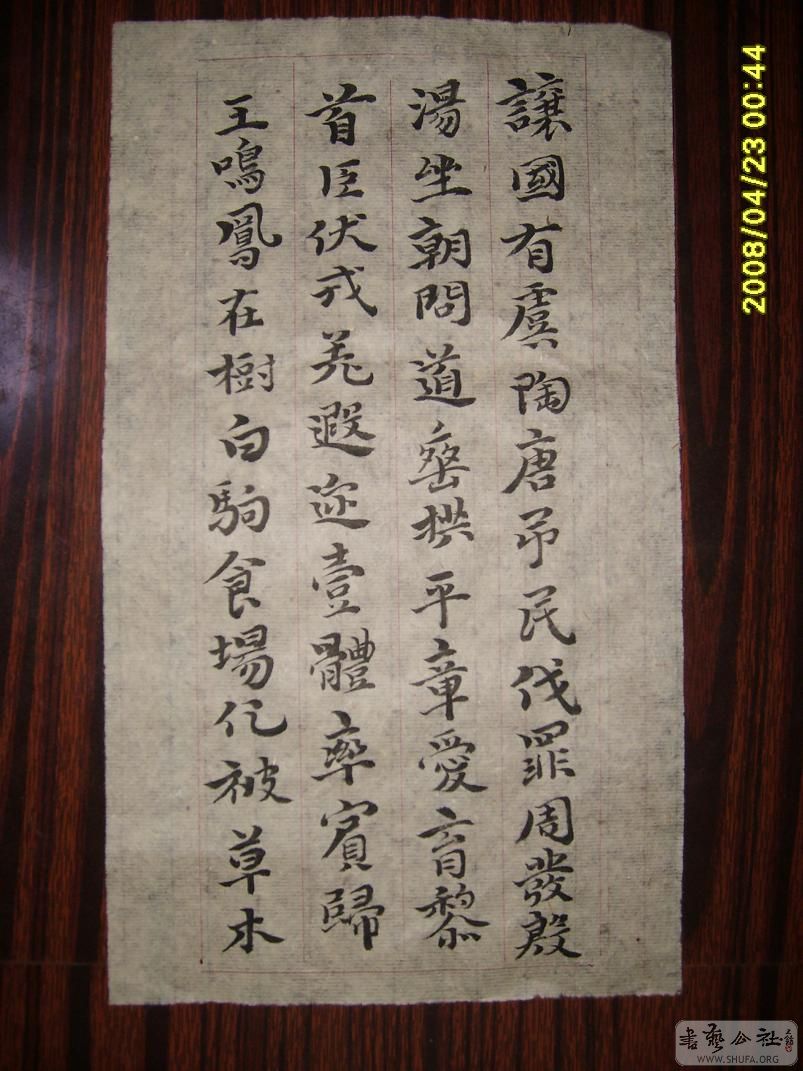 讓國有虞陶唐弔民伐罪周發殷
湯坐朝問道垂拱平章愛育黎
首臣伏戎羌遐迩壹體率賓歸
王鳴鳳在樹白駒食場化被草木
2008/04/23 00:44
書藝公社
WWW.SHUFA.ORG